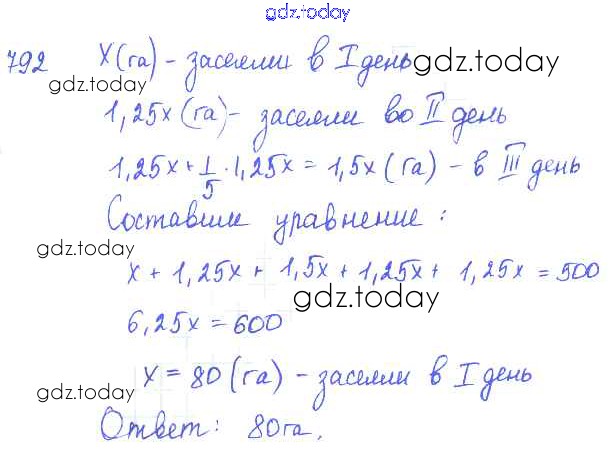 gdz.today
792 x(га) - засеяли в I день gdz.today
gdz.today
1,25x (га) - засеяли во II день
1,25x + 1/5 · 1,25x = 1,5x (га) - в III день
Составим уравнение :
gdz.today
x + 1,25x + 1,5x + 1,25x + 1,25x = 500
gdz.today
6,25x = 600
x = 80 (га) - засеяли в I день
gdz.today
Ответ: 80га.
gdz.today